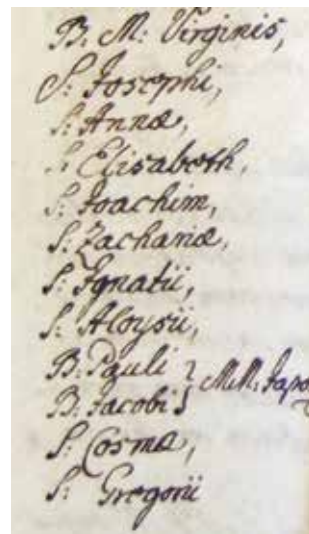 B. M: Virginis,
S: Josephi,
S: Annæ,
S: Elisabeth,
S: Joachim,
S: Zachariæ,
S: Ignatii,
S: Aloysii,
B: Pauli } M.M: Japo
B: Jacobi }
S: Cosmæ,
S: Gregorii